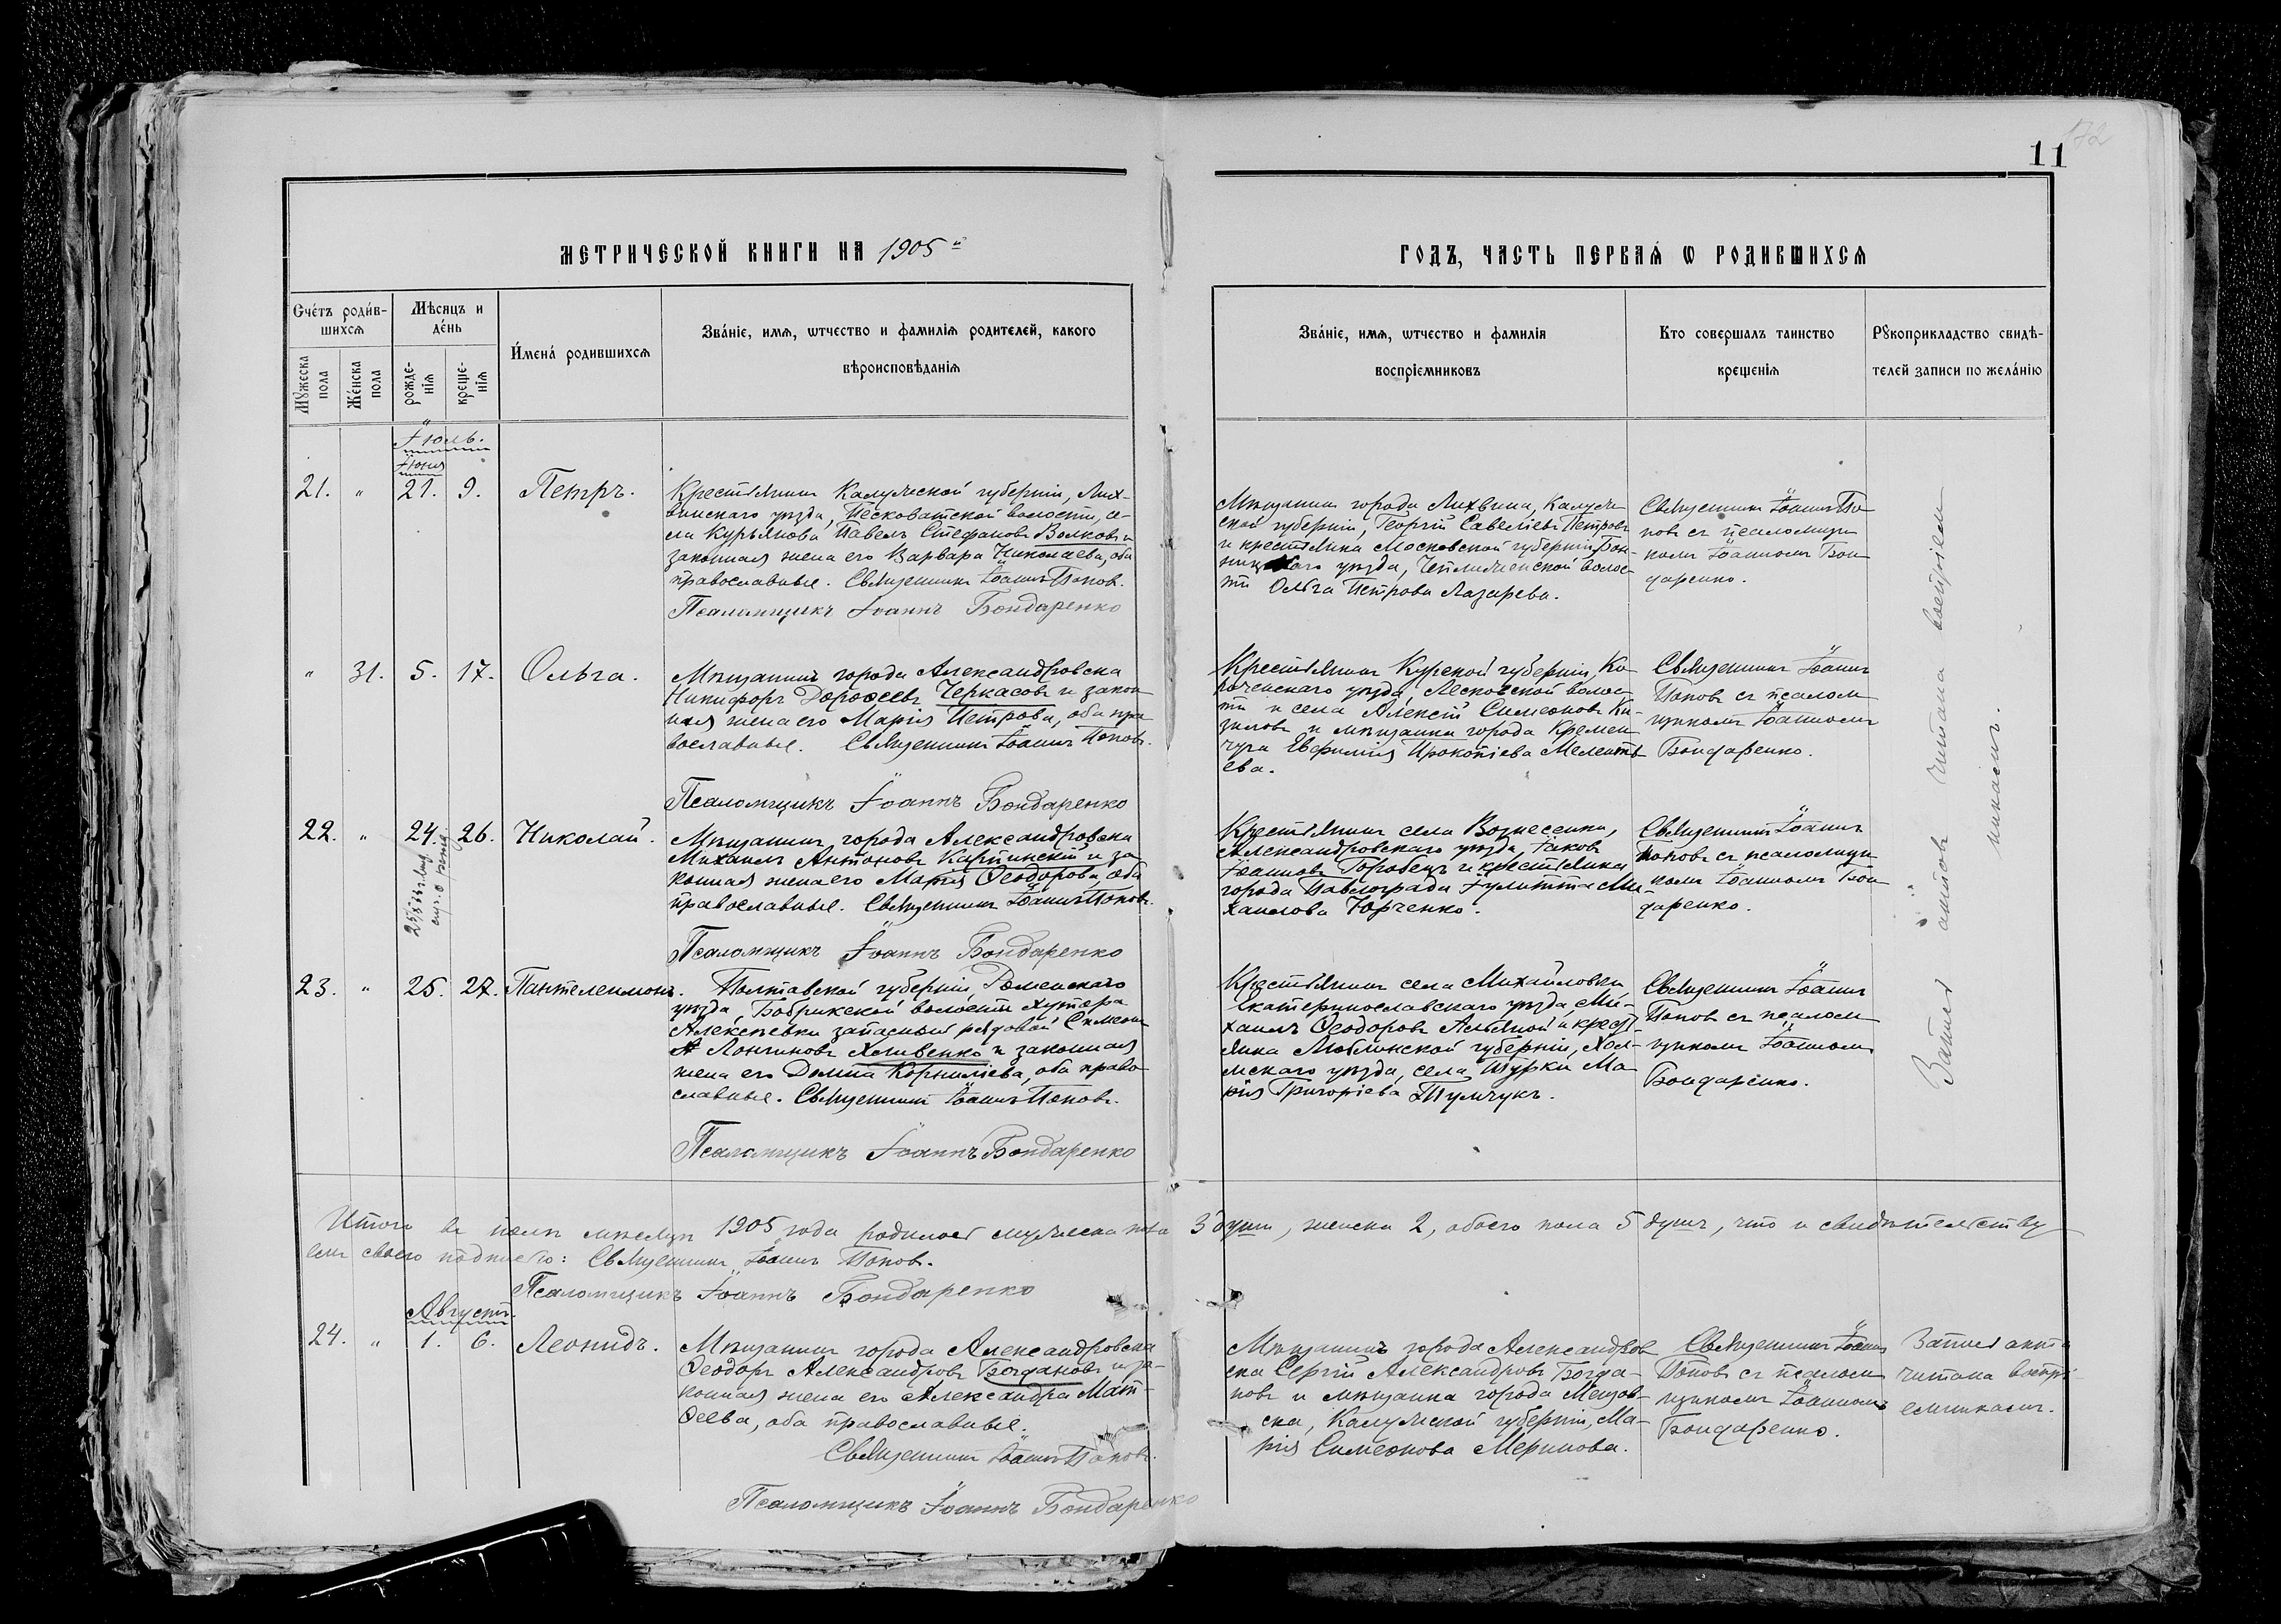 172
11
МЕТРИЧЕСКОЙ КНИГИ НА 1905й
ГОДЪ, ЧАСТЬ ПЕРВАЯ Ѡ РОДИВШИХСЯ
Счетъ родив-
шихся
Мѣсяцъ и
день
Мужеска
пола
Женска
пола
рожде-
нія
креще-
нія
Имена родившихся
Званіе, имя, ѡтчество и фамилія родителей, какого
вѣроисповѣданія
Званіе, имя, ѡтчество и фамилія
воспріемниковъ
Кто совершалъ таинство
крещенія
Рукоприкладство свидѣ-
телей записи по желанію
Іюль.
Іюня
21. " 21. 9. Петръ.
Крестьянинъ Калужской губерніи, Лих-
винскаго уѣзда, Песковатской волости, се-
ла Курьянова Павелъ Стефановъ Волковъ и
законная жена его Варвара Николаева, оба
православные. Священникъ Іоаннъ Поповъ.
Псаломщикъ Іоаннъ Бондаренко
Мѣщанинъ города Лихвина, Калуж-
ской губерніи, Георгій Савельевъ Петровъ
и крестьянка Московской губерніи,
уѣзда, волос-
ти Ольга Петрова Лазарева.
Священникъ Іоаннъ По
повъ съ псаломщи
комъ Іоанномъ Бон
даренко.
" 31. 5. 17. Ольга.
Мѣщанинъ города Александровска
Никифоръ Дороѳеевъ Черкасовъ и закон
ная жена его Марія Петрова, оба пра
вославные. Священникъ Іоаннъ Поповъ.
Псаломщикъ Іоаннъ Бондаренко
Крестьянинъ Курской губерніи, Ко
рочанскаго уѣзда, волос
ти и села Алексій Симеоновъ Ки-
зиловъ и мѣщанка города Кремен
чуга Евфимія Прокопіева Мелентъ
ева.
Священникъ Іоаннъ
Поповъ съ псалом
щикомъ Іоанномъ
Бондаренко.
22. " 24. 26. Николай.
Мѣщанинъ города Александровска
Михаилъ Антоновъ Карпинскій и за
конная жена его Марія Ѳеодорова, оба
православные. Священникъ Іоаннъ Поповъ.
Псаломщикъ Іоаннъ Бондаренко
Крестьянинъ села Вознесенки,
Александровскаго уѣзда, Іаковъ
Іоанновъ Горобецъ и крестьянка
города Павлограда Іулитта Ми-
хаилова Юрченко.
Священникъ Іоаннъ
Поповъ съ псаломщи
комъ Іоанномъ Бон
даренко.
23. " 25. 27. Пантелеимонъ.
Полтавской губерніи, Роменскаго
уѣзда, Бобрикской волости хутора
Алексѣевки запасный рядовой Симеонъ
Лонгиновъ Хливенко и законная
жена его Домна Корниліева, оба право
славные. Священникъ Іоаннъ Поповъ.
Псаломщикъ Іоаннъ Бондаренко
Крестьянинъ села Михайловки,
Екатеринославскаго уѣзда, Ми-
хаилъ Ѳеодоровъ и крест-
янка Люблинской губерніи, Хол-
мскаго уѣзда, села Турки Ма-
рія Григоріева Тумчукъ.
Священникъ Іоаннъ
Поповъ съ псалом
щикомъ Іоанномъ
Бондаренко.
Запись актовъ читана воспріем
никамъ.
Итого въ іюлѣ мѣсяцѣ 1905 года родилось мужеска пола 3 души, женска 2, обоего пола 5 душъ, что и свидѣтельству
емъ своею подписью: Священникъ Іоаннъ Поповъ.
Псаломщикъ Іоаннъ Бондаренко
Августъ.
24. " 1. 6. Леонидъ.
Мѣщанинъ города Александровска
Ѳеодоръ Александровъ Богдановъ и за-
конная жена его Александра Мат-
ѳеева, оба православные.
Священникъ Іоаннъ Поповъ.
Псаломщикъ Іоаннъ Бондаренко
Мѣщанинъ города Александров
ска Сергій Александровъ Богда-
новъ и мѣщанка города Мещов-
ска, Калужской губерніи, Ма-
рія Симеонова Меринова.
Священникъ Іоаннъ
Поповъ съ псалом
щикомъ Іоанномъ
Бондаренко.
Запись акта
читана воспрі
емникамъ.